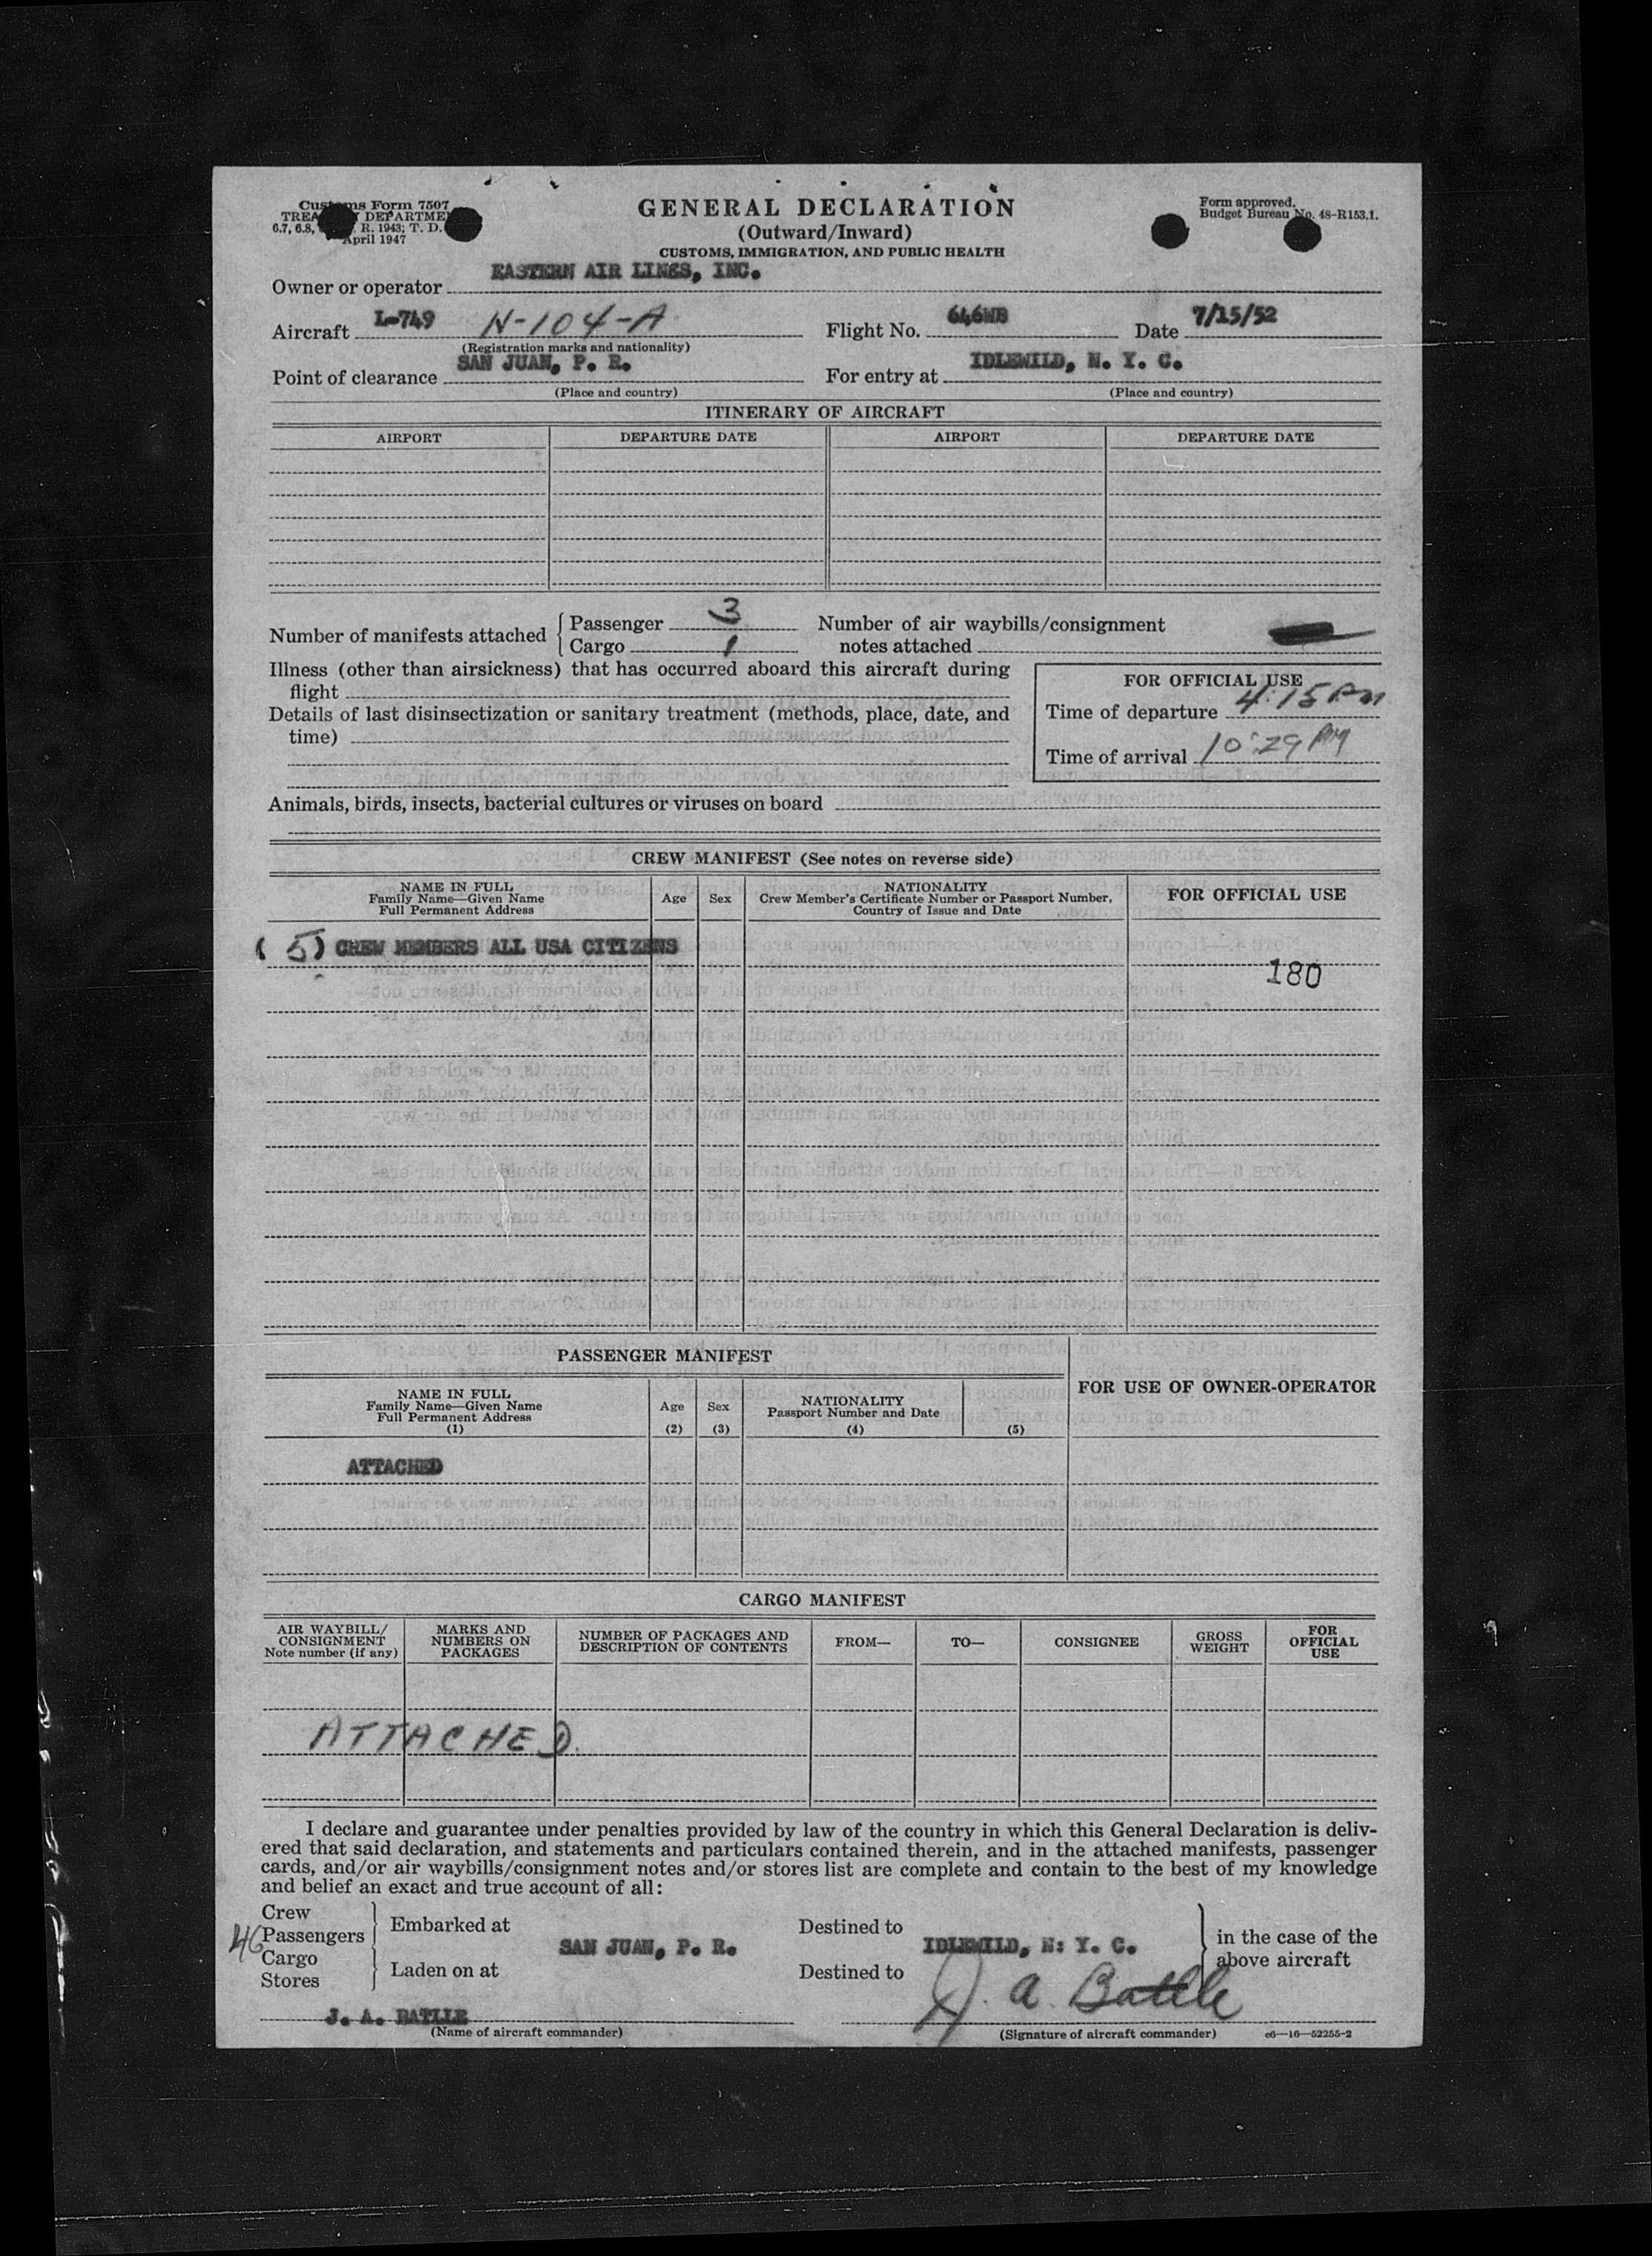 Customs Form 7507
TREASURY DEPARTMENT
6.7, 6.8, R. 1943; T. D.
April 1947
GENERAL DECLARATION
(Outward/Inward)
CUSTOMS, IMMIGRATION, AND PUBLIC HEALTH
Form approved.
Budget Bureau No. 48-R153.1.
Owner or operator EASTERN AIR LINES, INC.
Aircraft L-749 N-104-A Flight No. 646WB Date 7/15/52
(Registration marks and nationality)
Point of clearance SAN JUAN, P. R. For entry at IDLEWILD, N. Y. C.
(Place and country) (Place and country)
ITINERARY OF AIRCRAFT
AIRPORT DEPARTURE DATE AIRPORT DEPARTURE DATE
Number of manifests attached { Passenger 3
Cargo 1
Number of air waybills/consignment
notes attached
Illness (other than airsickness) that has occurred aboard this aircraft during
flight
Details of last disinsectization or sanitary treatment (methods, place, date, and
time)
FOR OFFICIAL USE
Time of departure 4:15 PM
Time of arrival 10:29 PM
Animals, birds, insects, bacterial cultures or viruses on board
CREW MANIFEST (See notes on reverse side)
NAME IN FULL
Family Name—Given Name
Full Permanent Address
Age
Sex
NATIONALITY
Crew Member's Certificate Number or Passport Number,
Country of Issue and Date
FOR OFFICIAL USE
(5) CREW MEMBERS ALL USA CITIZENS
180
PASSENGER MANIFEST
NAME IN FULL
Family Name—Given Name
Full Permanent Address
(1)
Age
(2)
Sex
(3)
NATIONALITY
Passport Number and Date
(4)
(5)
FOR USE OF OWNER-OPERATOR
ATTACHED
CARGO MANIFEST
AIR WAYBILL/
CONSIGNMENT
Note number (if any)
MARKS AND
NUMBERS ON
PACKAGES
NUMBER OF PACKAGES AND
DESCRIPTION OF CONTENTS
FROM—
TO—
CONSIGNEE
GROSS
WEIGHT
FOR
OFFICIAL
USE
ATTACHED.
I declare and guarantee under penalties provided by law of the country in which this General Declaration is deliv-
ered that said declaration, and statements and particulars contained therein, and in the attached manifests, passenger
cards, and/or air waybills/consignment notes and/or stores list are complete and contain to the best of my knowledge
and belief an exact and true account of all:
Crew
46 Passengers
Cargo
Stores
Embarked at
SAN JUAN, P. R.
Laden on at
Destined to
IDLEWILD, N: Y. C.
Destined to
in the case of the
above aircraft
J. A. BATLLE
(Name of aircraft commander)
J. A. Batlle
(Signature of aircraft commander)
c6—16—52255-2